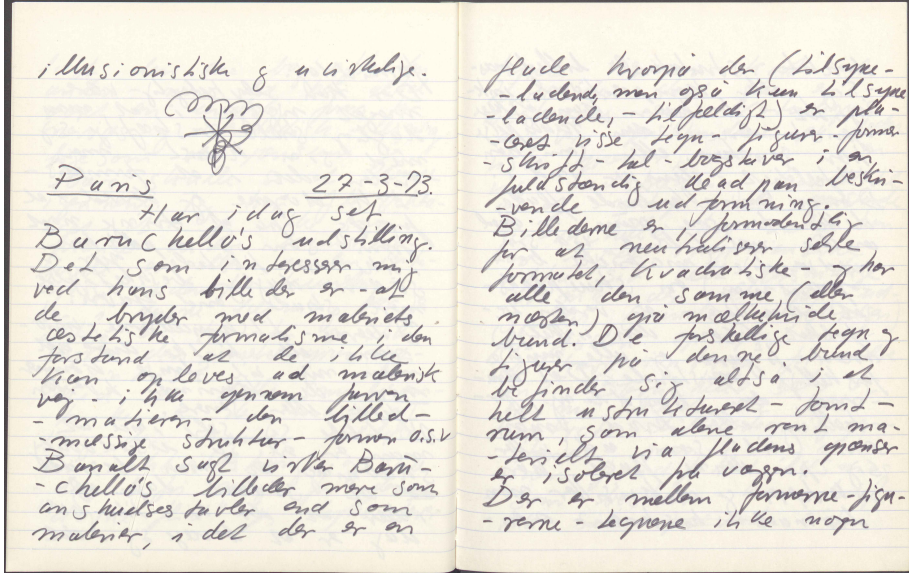 illusionistiske g uvirkelige.
Paris 27-3-73.
Har idag set
Baruchello's udstilling.
Det som interesserer mig
ved hans billeder er - at
de bryder med maleriets
æstetiske formalisme i den
forstand at de ikke
kan opleves ad malerisk
vej - ikke gennem farven
- matieren - den billed-
-mæssige struktur - formen o.s.v
Banalt sagt virker Baru-
-chello's billeder mere som
anskuelses tavler end som
malerier, idet der er en
flade hvorpå der (tilsyne-
-ladende, men også kun tilsyne-
-ladende, - tilfældigt) er pla-
-ceret visse tegn - figurer - former
- skrift - tal - bogstaver i en
fuldstændig dead pan beskri-
-vende udformning.
Billederne er, formodentlig
for at neutraliserer selve
formatet, kvadratiske - g har
alle den samme (eller
næsten) grå mælkehvide
bund. De forskellige tegn g
figurer på denne bund
befinder sig altså i et
helt ustruktureret - tomt -
rum, som alene rent ma-
-terielt via fladens grænser
er isoleret på væggen.
Der er mellem formerne - figu-
-rerne - tegnene ikke nogen